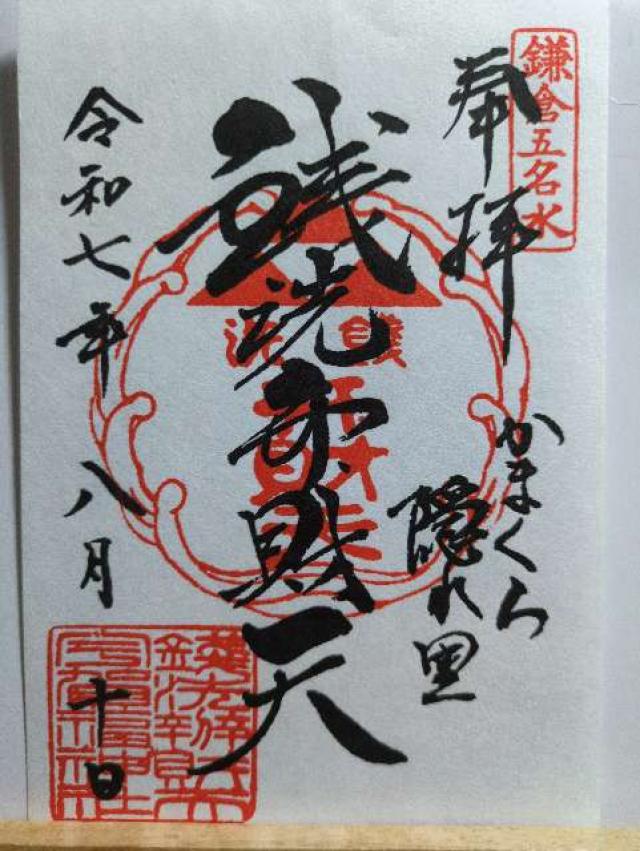 鎌倉五名水
奉拝
かまくら
隠れ里
銭洗弁財天
銭洗
令和七年八月十日